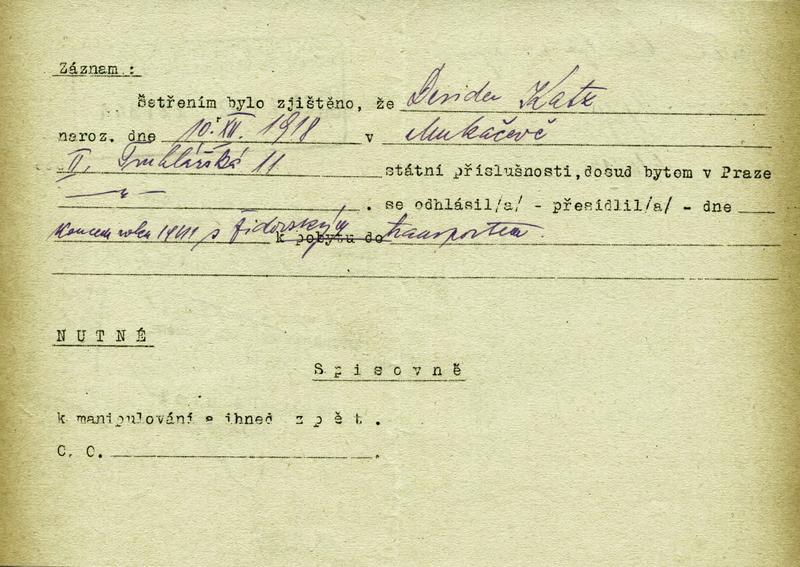 Záznam :
Šetřením bylo zjištěno, že Desider Katz
naroz. dne 10. XII. 1918 v Mukačevě
II, Truhlářská 11 státní příslušnosti, dosud bytem v Praze
. se odhlásil/a/ - přesídlil/a/ - dne
koncem roku 1941 s židovským k pobytu do transportem.
NUTNÉ
Spisovně
k manipulování a ihned zpět.
C. C. .